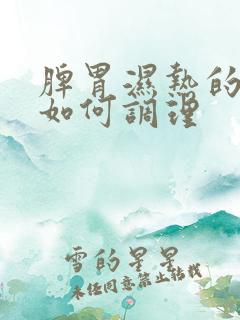 脾胃濕熱的
如何調理
雪的星星
未经同意禁止转载